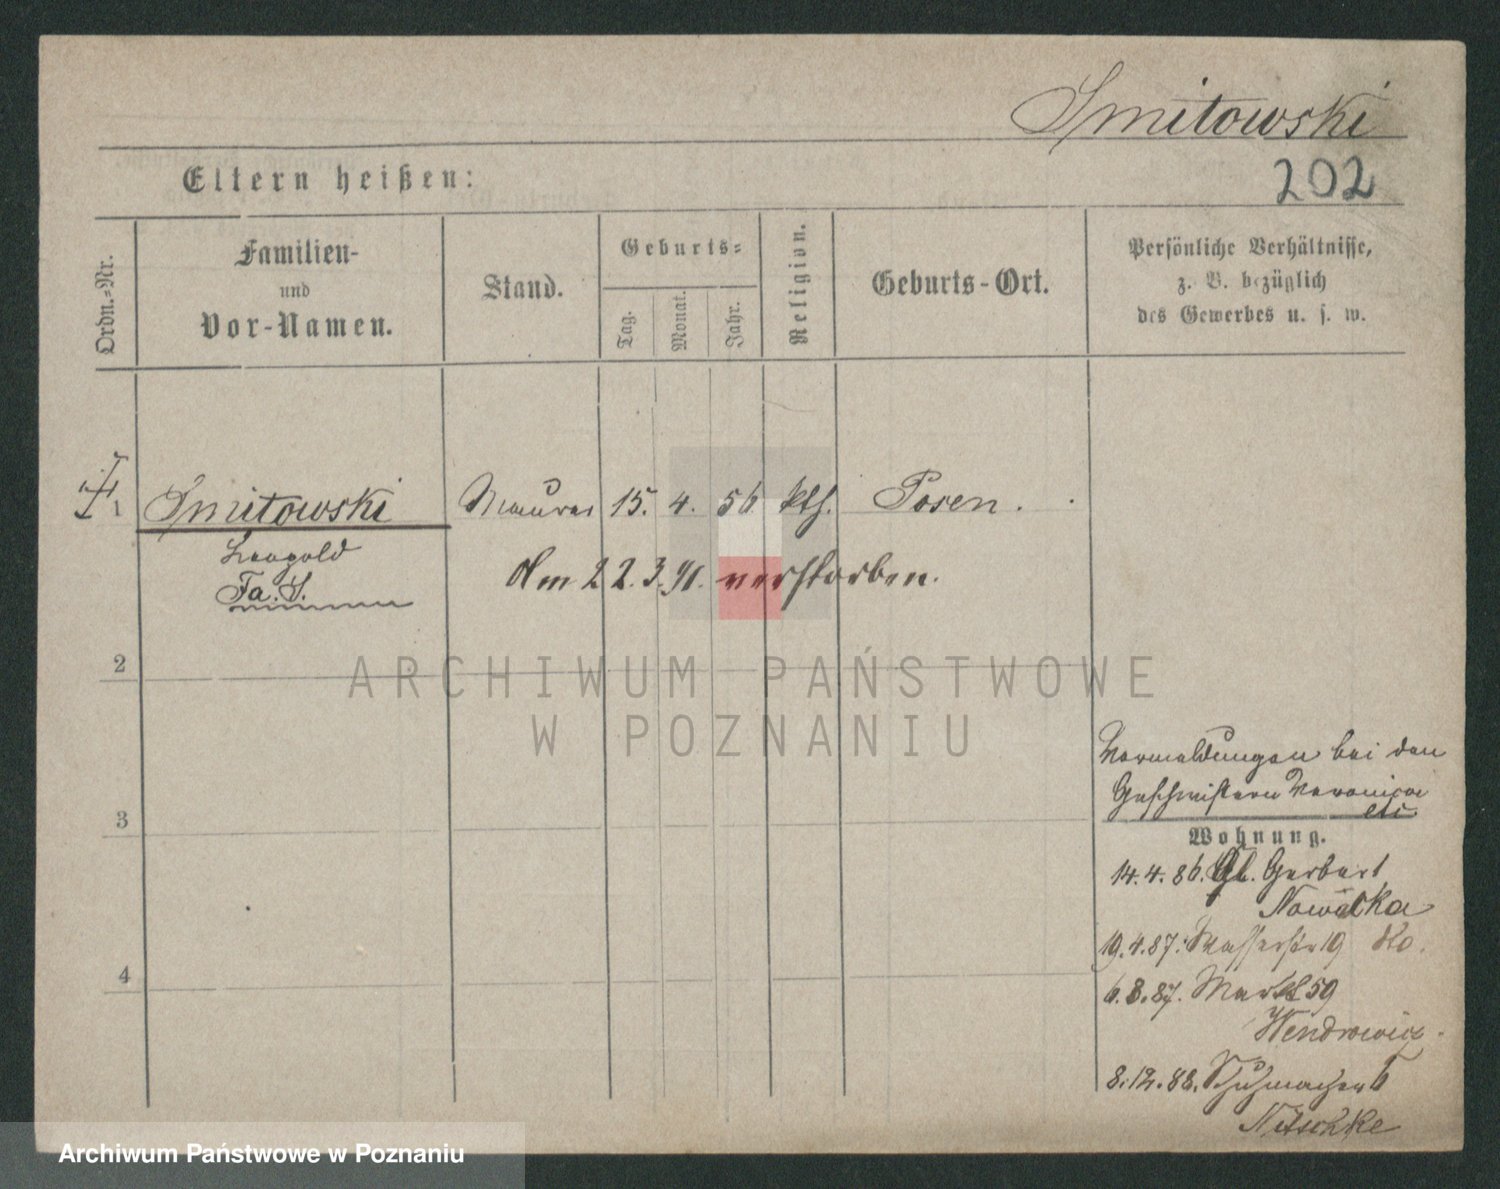 Smitowski
202
Eltern heißen:
Ordn.-Nr.
Familien-
und
Vor-Namen.
Stand.
Geburts-
Tag.
Monat.
Jahr.
Religion.
Geburts-Ort.
Persönliche Verhältnisse,
z. B. bezüglich
des Gewerbes u. s. w.
1 Smitowski Maurer 15. 4. 56 kth. Posen.
Leopold
Fa. S.
Am 22.3.91. verstorben.
2
ARCHIWUM PAŃSTWOWE
W POZNANIU
Vormeldungen bei den
Geschwistern Veronica
etc
3
Wohnung.
14.4.86. Gr. Gerberst
Nowacka
19.4.87. Wasserstr 19
4
6.8.87. Markt 59
Wendrowicz
8.12.88. Schuhmacherst
Nitschke
Archiwum Państwowe w Poznaniu